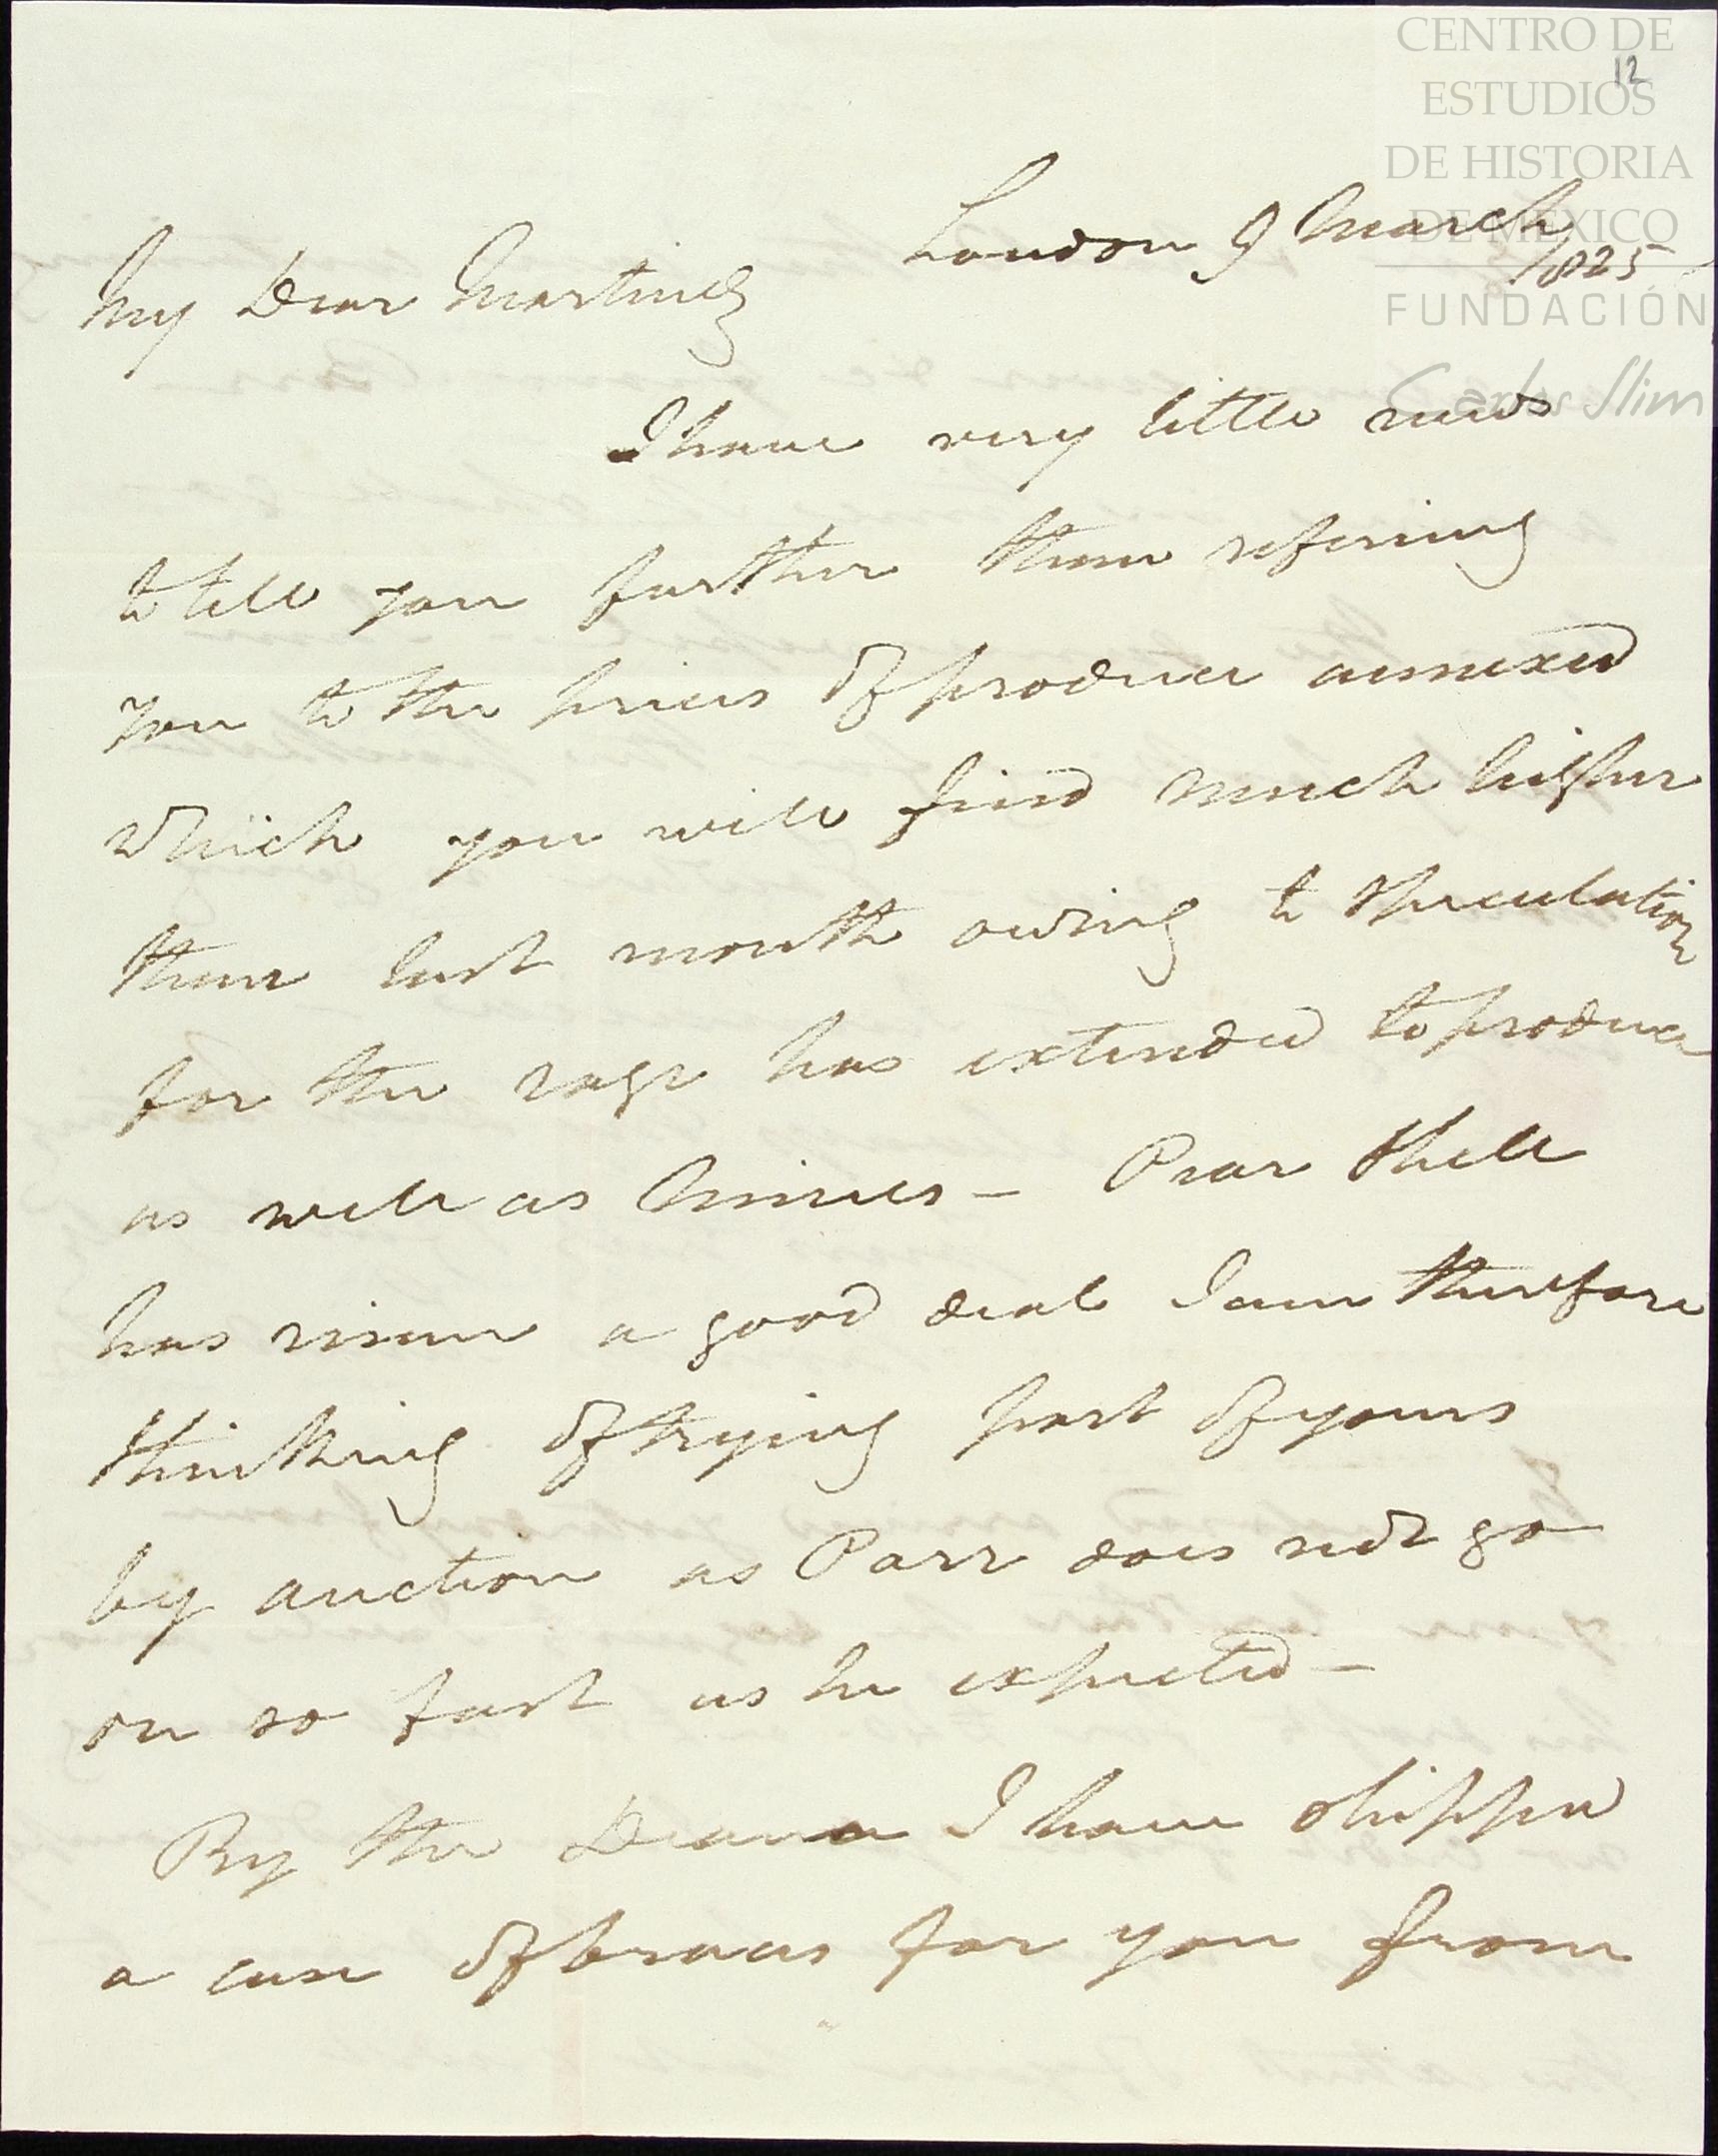 CENTRO DE
ESTUDIOS
DE HISTORIA
DE MEXICO
FUNDACIÓN
Carlos Slim
12
London 9 March
1825
My Dear Martinez
I have very little news
to tell you further than refering
you to the prices of produce annexed
which you will find much higher
than last month owing to speculation
for the rage has extended to produce
as well as Mines – Pear Shell
has risen a good deal I am therefore
thinking of trying part of yours
by auction as Parr does not go
on so fast as he expected –
By the Diana I have shipped
a case of braces for you from